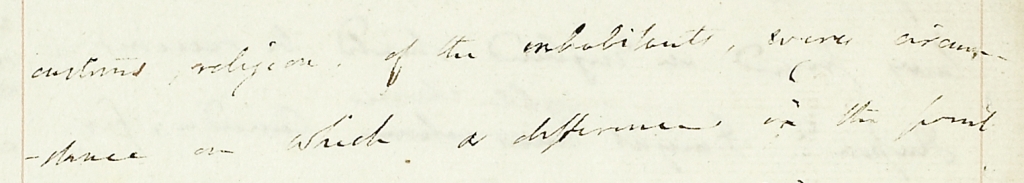 customs, religion, of the inhabitants, every circum-
-stance on which a difference in the point